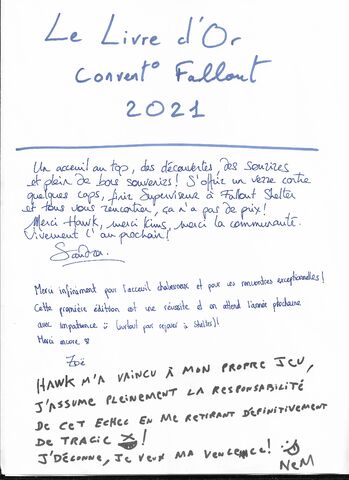 Le Livre d'Or
Convent° Fallout
2021
Un acceuil au top, des découvertes, des sourires
et plein de bons souvenirs ! S'offrir un verre contre
quelques caps, finir Superviseur à Fallout Shelter
et tous vous rencontrer, ça n'a pas de prix !
Merci Hawk, merci Kims, merci la communauté.
Vivement l'an prochain !
Sandra.
Merci infiniment par l'acceuil chaleureux et pour les rencontres exceptionnelles !
Cette première édition est une réussite et on attend l'année prochaine
avec impatience :) (surtout par rejouer à Shelter)!
Merci encore
Zoé
HAWK M'A VAINCU À MON PROPRE JEU,
J'ASSUME PLEINEMENT LA RESPONSABILITÉ
DE CET ECHEC EN ME RETIRANT DEFINITIVEMENT
DE TRAGIC !
J'DÉCONNE, JE VEUX MA VENGENCE !
NEM